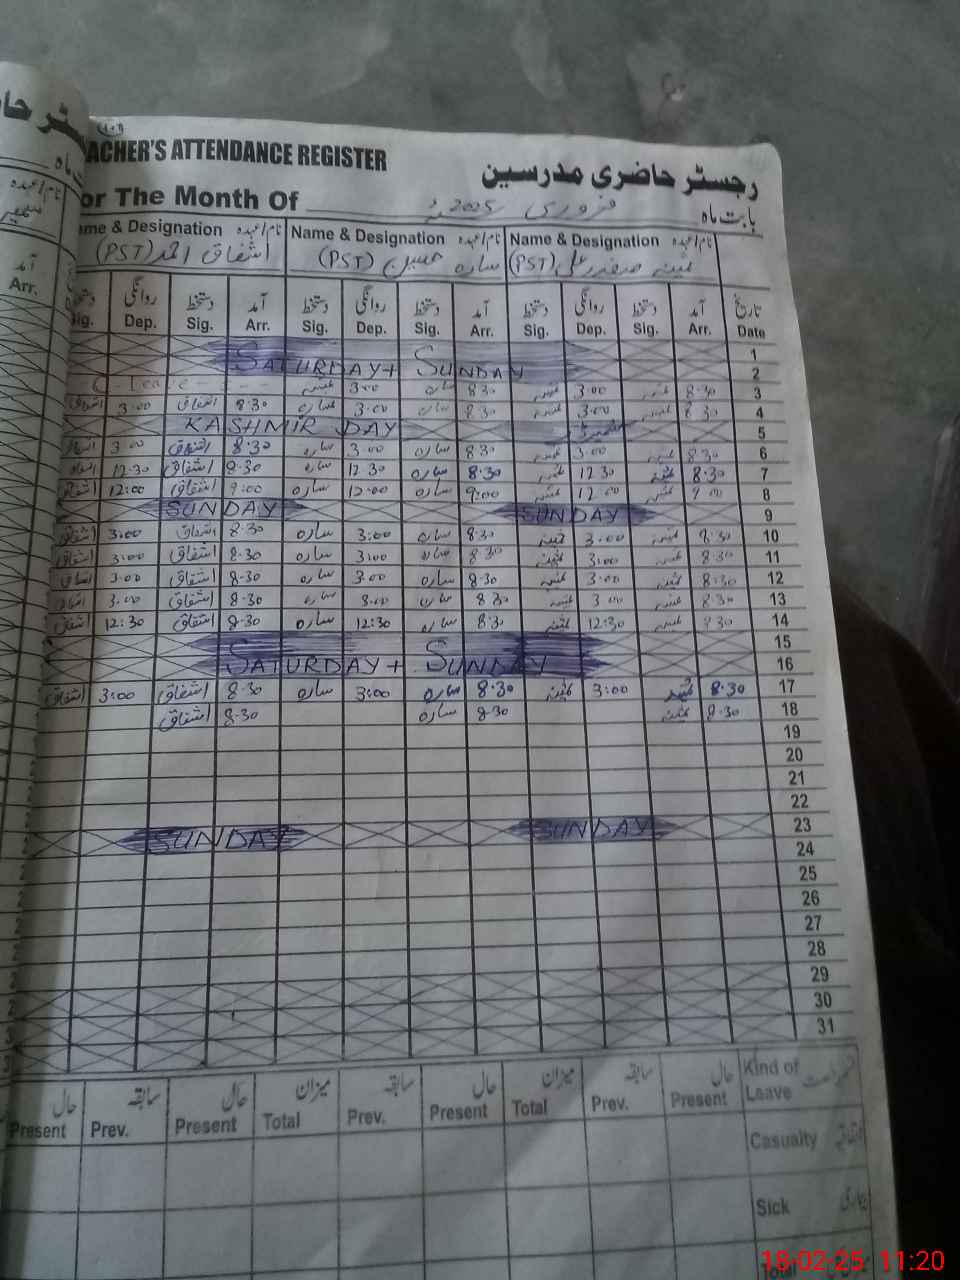 رجسٹر حا
(۱۰۱)
ACHER'S ATTENDANCE REGISTER رجسٹر حاضری مدرسین
or The Month Of فروری 2025ء بابت ماہ
me & Designation نام/عہدہ Name & Designation نام/عہدہ Name & Designation نام/عہدہ
اشفاق احمد (PST) سارہ حسین (PST) ثمینہ صفدر علی (PST)
آمد دستخط روانگی دستخط آمد دستخط روانگی دستخط آمد دستخط روانگی دستخط آمد تاریخ
Arr. Sig. Dep. Sig. Arr. Sig. Dep. Sig. Arr. Sig. Dep. Sig. Arr. Date
1
SATURDAY + SUNDAY 2
C-Leave 3:00 سارہ 8:30 3:00 8:30 3
اشفاق 3:00 اشفاق 8:30 سارہ 3:00 سارہ 8:30 3:00 8:30 4
KASHMIR DAY 5
اشفاق 3:00 اشفاق 8:30 سارہ 3:00 سارہ 8:30 3:00 8:30 6
اشفاق 12:30 اشفاق 8:30 سارہ 12:30 سارہ 8:30 12:30 8:30 7
اشفاق 12:00 اشفاق 9:00 سارہ 12:00 سارہ 9:00 12:00 9:00 8
SUNDAY SUNDAY 9
اشفاق 3:00 اشفاق 8:30 سارہ 3:00 سارہ 8:30 3:00 8:30 10
اشفاق 3:00 اشفاق 8:30 سارہ 3:00 سارہ 8:30 3:00 8:30 11
اشفاق 3:00 اشفاق 8:30 سارہ 3:00 سارہ 8:30 3:00 8:30 12
اشفاق 3:00 اشفاق 8:30 سارہ 3:00 سارہ 8:30 3:00 8:30 13
اشفاق 12:30 اشفاق 8:30 سارہ 12:30 سارہ 8:30 12:30 8:30 14
15
SATURDAY + SUNDAY 16
اشفاق 3:00 اشفاق 8:30 سارہ 3:00 سارہ 8:30 3:00 8:30 17
اشفاق 8:30 سارہ 8:30 8:30 18
19
20
21
22
SUNDAY SUNDAY 23
24
25
26
27
28
29
30
31
حال سابقہ حال میزان سابقہ حال میزان سابقہ حال Kind of
Present Prev. Present Total Prev. Present Total Prev. Present Leave
Casualty اتفاقیہ
Sick بیماری
Total
18-02-25 11:20